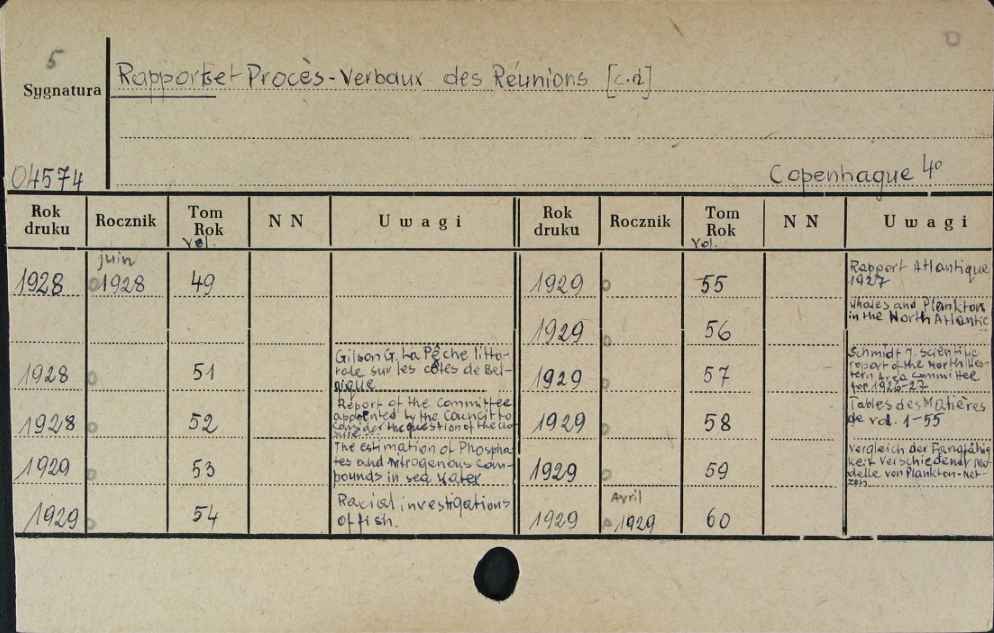 5
Sygnatura
04574
Rapports et Procès-Verbaux des Réunions [c.d]
Copenhague 4°
Rok druku Rocznik Tom Rok Vol. N N Uwagi Rok druku Rocznik Tom Rok Vol. N N Uwagi
1928 juin 1928 49
1928 51 Gilson G. La Pêche litto-
rale sur les côtes de Bel-
gique
1928 52 Report of the Committee
appointed by the Council to
consider the question of the
1929 53 The estimation of Phospha-
tes and Nitrogenous Com-
pounds in sea water
1929 54 Racial investigations
of fish.
1929 55 Rapport Atlantique
1927
1929 56 Whales and Plankton
in the North Atlantic
1929 57 Schmidt J. Scientific
report of the North Wes-
tern Area Committee
for 1926-27
1929 58 Tables des Matières
de vol. 1-55
1929 59 Vergleich der Fangfähig
keit verschiedener Mo-
delle von Plankton-Net-
zen
1929 Avril 1929 60